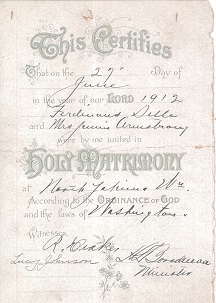 This Certifies
That on the 27 Day of
June
in the year of our LORD 1912
Ferdinand Delle
and Mrs Jennie Armstrong
were by me united in
HOLY MATRIMONY
at North Yakima Wn.
According to the ORDINANCE OF GOD
and the laws of Washington
Witnesses
R. Drake
Lucy Johnson
Minister